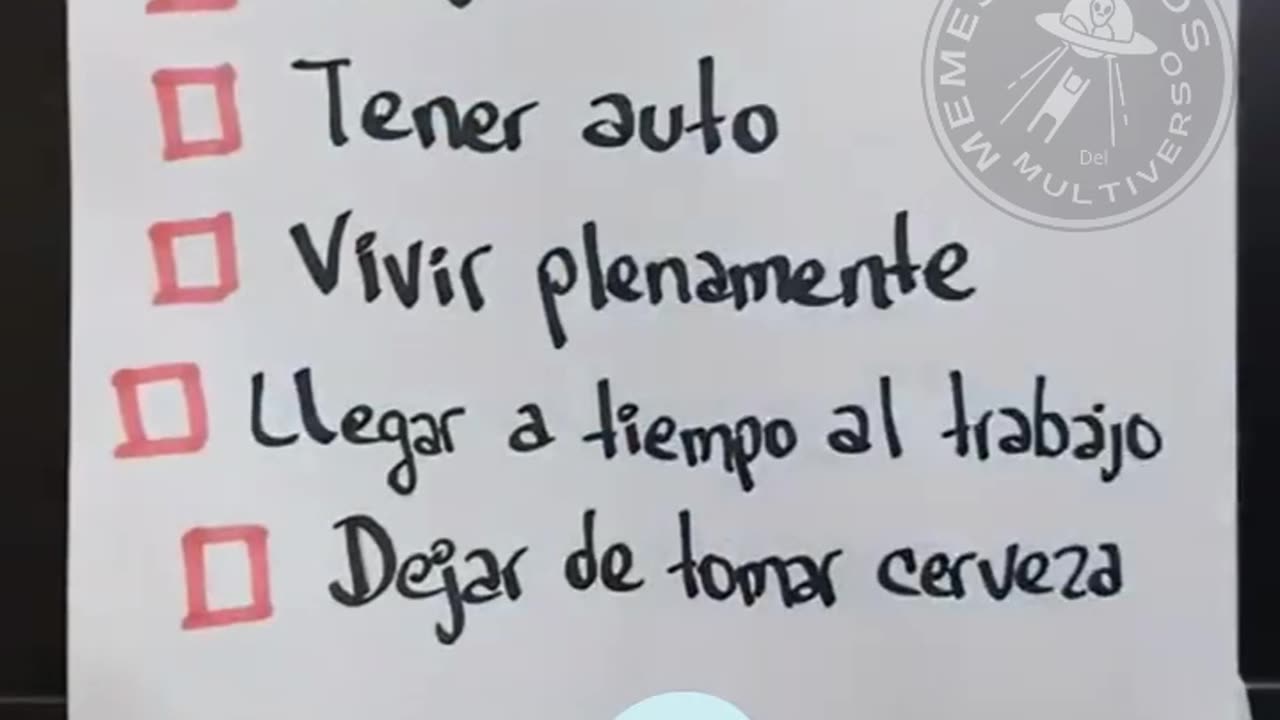 Tener auto
Vivir plenamente
Llegar a tiempo al trabajo
Dejar de tomar cerveza
Del
MULTIVERSOS